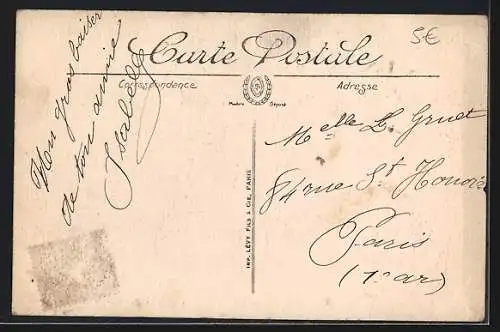 5€
Carte Postale
Correspondance
Adresse
Modèle Déposé
Mon gros baiser
de ton amie
Isabelle
Melle L. Gruet
84 rue St Honoré
Paris
(1er ar)
IMP. LÉVY FILS & CIE, PARIS